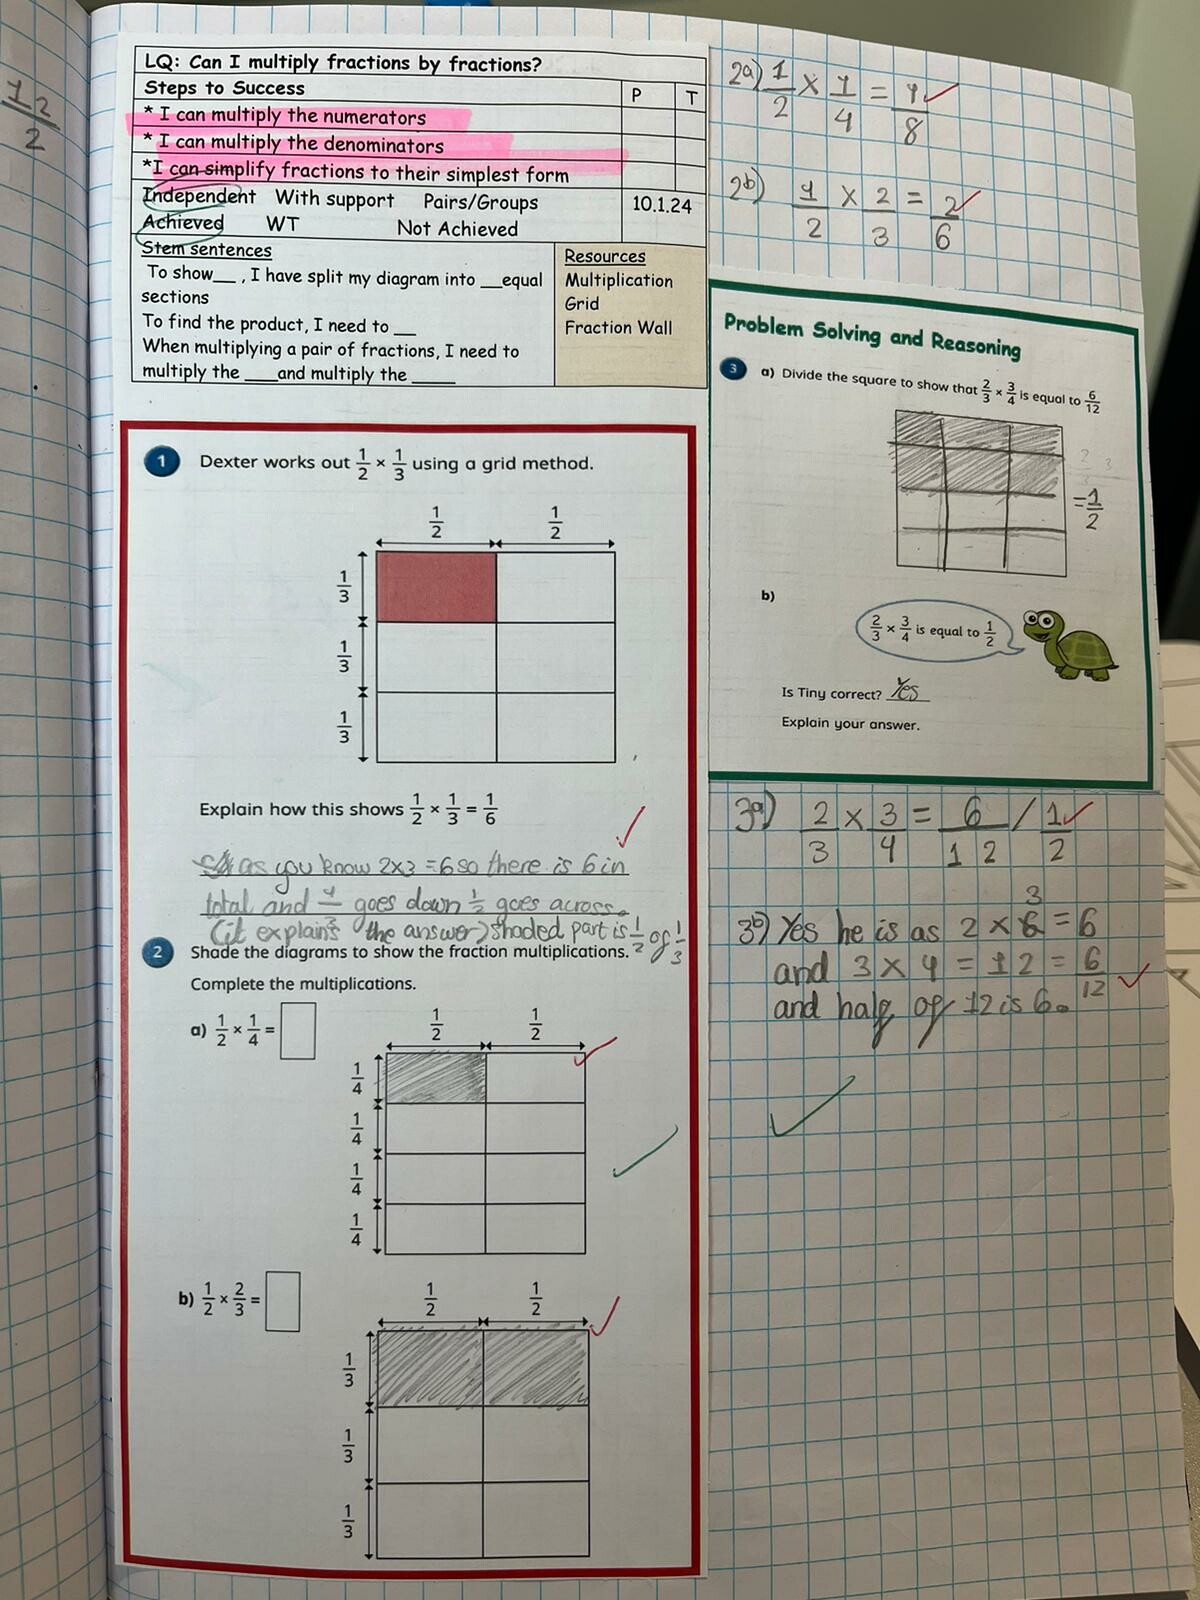 12
2
LQ: Can I multiply fractions by fractions?
Steps to Success
P
T
* I can multiply the numerators
* I can multiply the denominators
*I can simplify fractions to their simplest form
Independent With support Pairs/Groups
10.1.24
Achieved WT Not Achieved
Stem sentences
To show__ , I have split my diagram into __equal
sections
To find the product, I need to __
When multiplying a pair of fractions, I need to
multiply the ___and multiply the ____
Resources
Multiplication
Grid
Fraction Wall
1 Dexter works out 1/2 × 1/3 using a grid method.
1/2 1/2
1/3
1/3
1/3
Explain how this shows 1/2 × 1/3 = 1/6
as you know 2x3 =6 so there is 6 in
total and 1/3 goes down 1/2 goes across.
(it explains the answer) shaded part is 1/2 of 1/3
2 Shade the diagrams to show the fraction multiplications.
Complete the multiplications.
a) 1/2 × 1/4 =
1/2 1/2
1/4
1/4
1/4
1/4
b) 1/2 × 2/3 =
1/2 1/2
1/3
1/3
1/3
2a) 1/2 x 1/4 = 1/8
2b) 1/2 x 2/3 = 2/6
Problem Solving and Reasoning
3 a) Divide the square to show that 2/3 × 3/4 is equal to 6/12
= 1/2
b)
2/3 × 3/4 is equal to 1/2
Is Tiny correct? Yes
Explain your answer.
3a) 2/3 x 3/4 = 6/12 / 1/2
3b) Yes he is as 2 x 3 = 6
and 3 x 4 = 12 = 6/12
and half of 12 is 6.